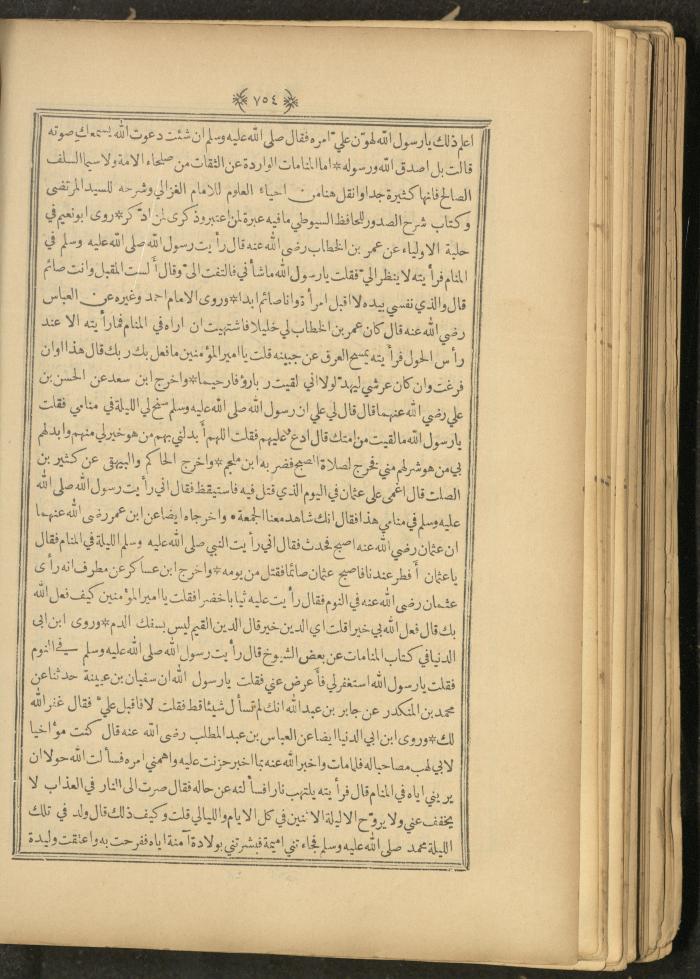 ﴿٧٥٤﴾
اعلم ذلك يا رسول الله لهوّن عليّ امره فقال صلى الله عليه وسلم ان شئت دعوت الله يسمعك صوته
قالت بل اصدق الله ورسوله * اما المنامات الواردة عن الثقات من صلحاء الامة ولا سيما السلف
الصالح فانها كثيرة جدا وانقل هنا من احياء العلوم للامام الغزالي وشرحه للسيد المرتضى
وكتاب شرح الصدور للحافظ السيوطي ما فيه عبرة لمن اعتبر وذكرى لمن ادّكر * روى ابو نعيم في
حلية الاولياء عن عمر بن الخطاب رضي الله عنه قال رأيت رسول الله صلى الله عليه وسلم في
المنام فرأيته لا ينظر اليّ فقلت يا رسول الله ما شأني فالتفت اليّ وقال ألست المقبل وانت صائم
قال والذي نفسي بيده لا اقبل امرأة وانا صائم ابدا * وروى الامام احمد وغيره عن العباس
رضي الله عنه قال كان عمر بن الخطاب لي خليلا فاشتهيت ان اراه في المنام فما رأيته الا عند
رأس الحول فرأيته يمسح العرق عن جبينه قلت يا امير المؤمنين ما فعل بك ربك قال هذا اوان
فرغت وان كان عرشي ليهدّ لولا اني لقيت ربا رؤفا رحيما * واخرج ابن سعد عن الحسن بن
علي رضي الله عنهما قال قال لي علي ان رسول الله صلى الله عليه وسلم سنح لي الليلة في منامي فقلت
يا رسول الله ما لقيت من امتك قال ادع عليهم فقلت اللهم أبدلني بهم من هو خير لي منهم وابدلهم
بي من هو شر لهم مني فخرج لصلاة الصبح فضربه ابن ملجم * واخرج الحاكم والبيهقي عن كثير بن
الصلت قال اغمي على عثمان في اليوم الذي قتل فيه فاستيقظ فقال اني رأيت رسول الله صلى الله
عليه وسلم في منامي هذا فقال انك شاهد معنا الجمعة * واخرجا ايضا عن ابن عمر رضي الله عنهما
ان عثمان رضي الله عنه اصبح فحدث فقال اني رأيت النبي صلى الله عليه وسلم الليلة في المنام فقال
يا عثمان أفطر عندنا فاصبح عثمان صائما فقتل من يومه * واخرج ابن عساكر عن مطرف انه رأى
عثمان رضي الله عنه في النوم فقال رأيت عليه ثيابا خضرا فقلت يا امير المؤمنين كيف فعل الله
بك قال فعل الله بي خيرا قلت اي الدين خير قال الدين القيم ليس بسفك الدم * وروى ابن ابي
الدنيا في كتاب المنامات عن بعض الشيوخ قال رأيت رسول الله صلى الله عليه وسلم في النوم
فقلت يا رسول الله استغفر لي فأعرض عني فقلت يا رسول الله ان سفيان بن عيينة حدثنا عن
محمد بن المنكدر عن جابر بن عبد الله انك لم تسأل شيئا قط فقلت لا فاقبل عليّ فقال غفر الله
لك * وروى ابن ابي الدنيا ايضا عن العباس بن عبد المطلب رضي الله عنه قال كنت مؤاخيا
لابي لهب مصاحبا له فلما مات واخبر الله عنه بما اخبر حزنت عليه واهمني امره فسألت الله حولا ان
يريني اياه في المنام قال فرأيته يلتهب نارا فسألته عن حاله فقال صرت الى النار في العذاب لا
يخفف عني ولا يروّح الا ليلة الاثنين في كل الايام والليالي قلت وكيف ذلك قال ولد في تلك
الليلة محمد صلى الله عليه وسلم فجاءتني اميمة فبشرتني بولادة آمنة اياه ففرحت به واعتقت وليدة